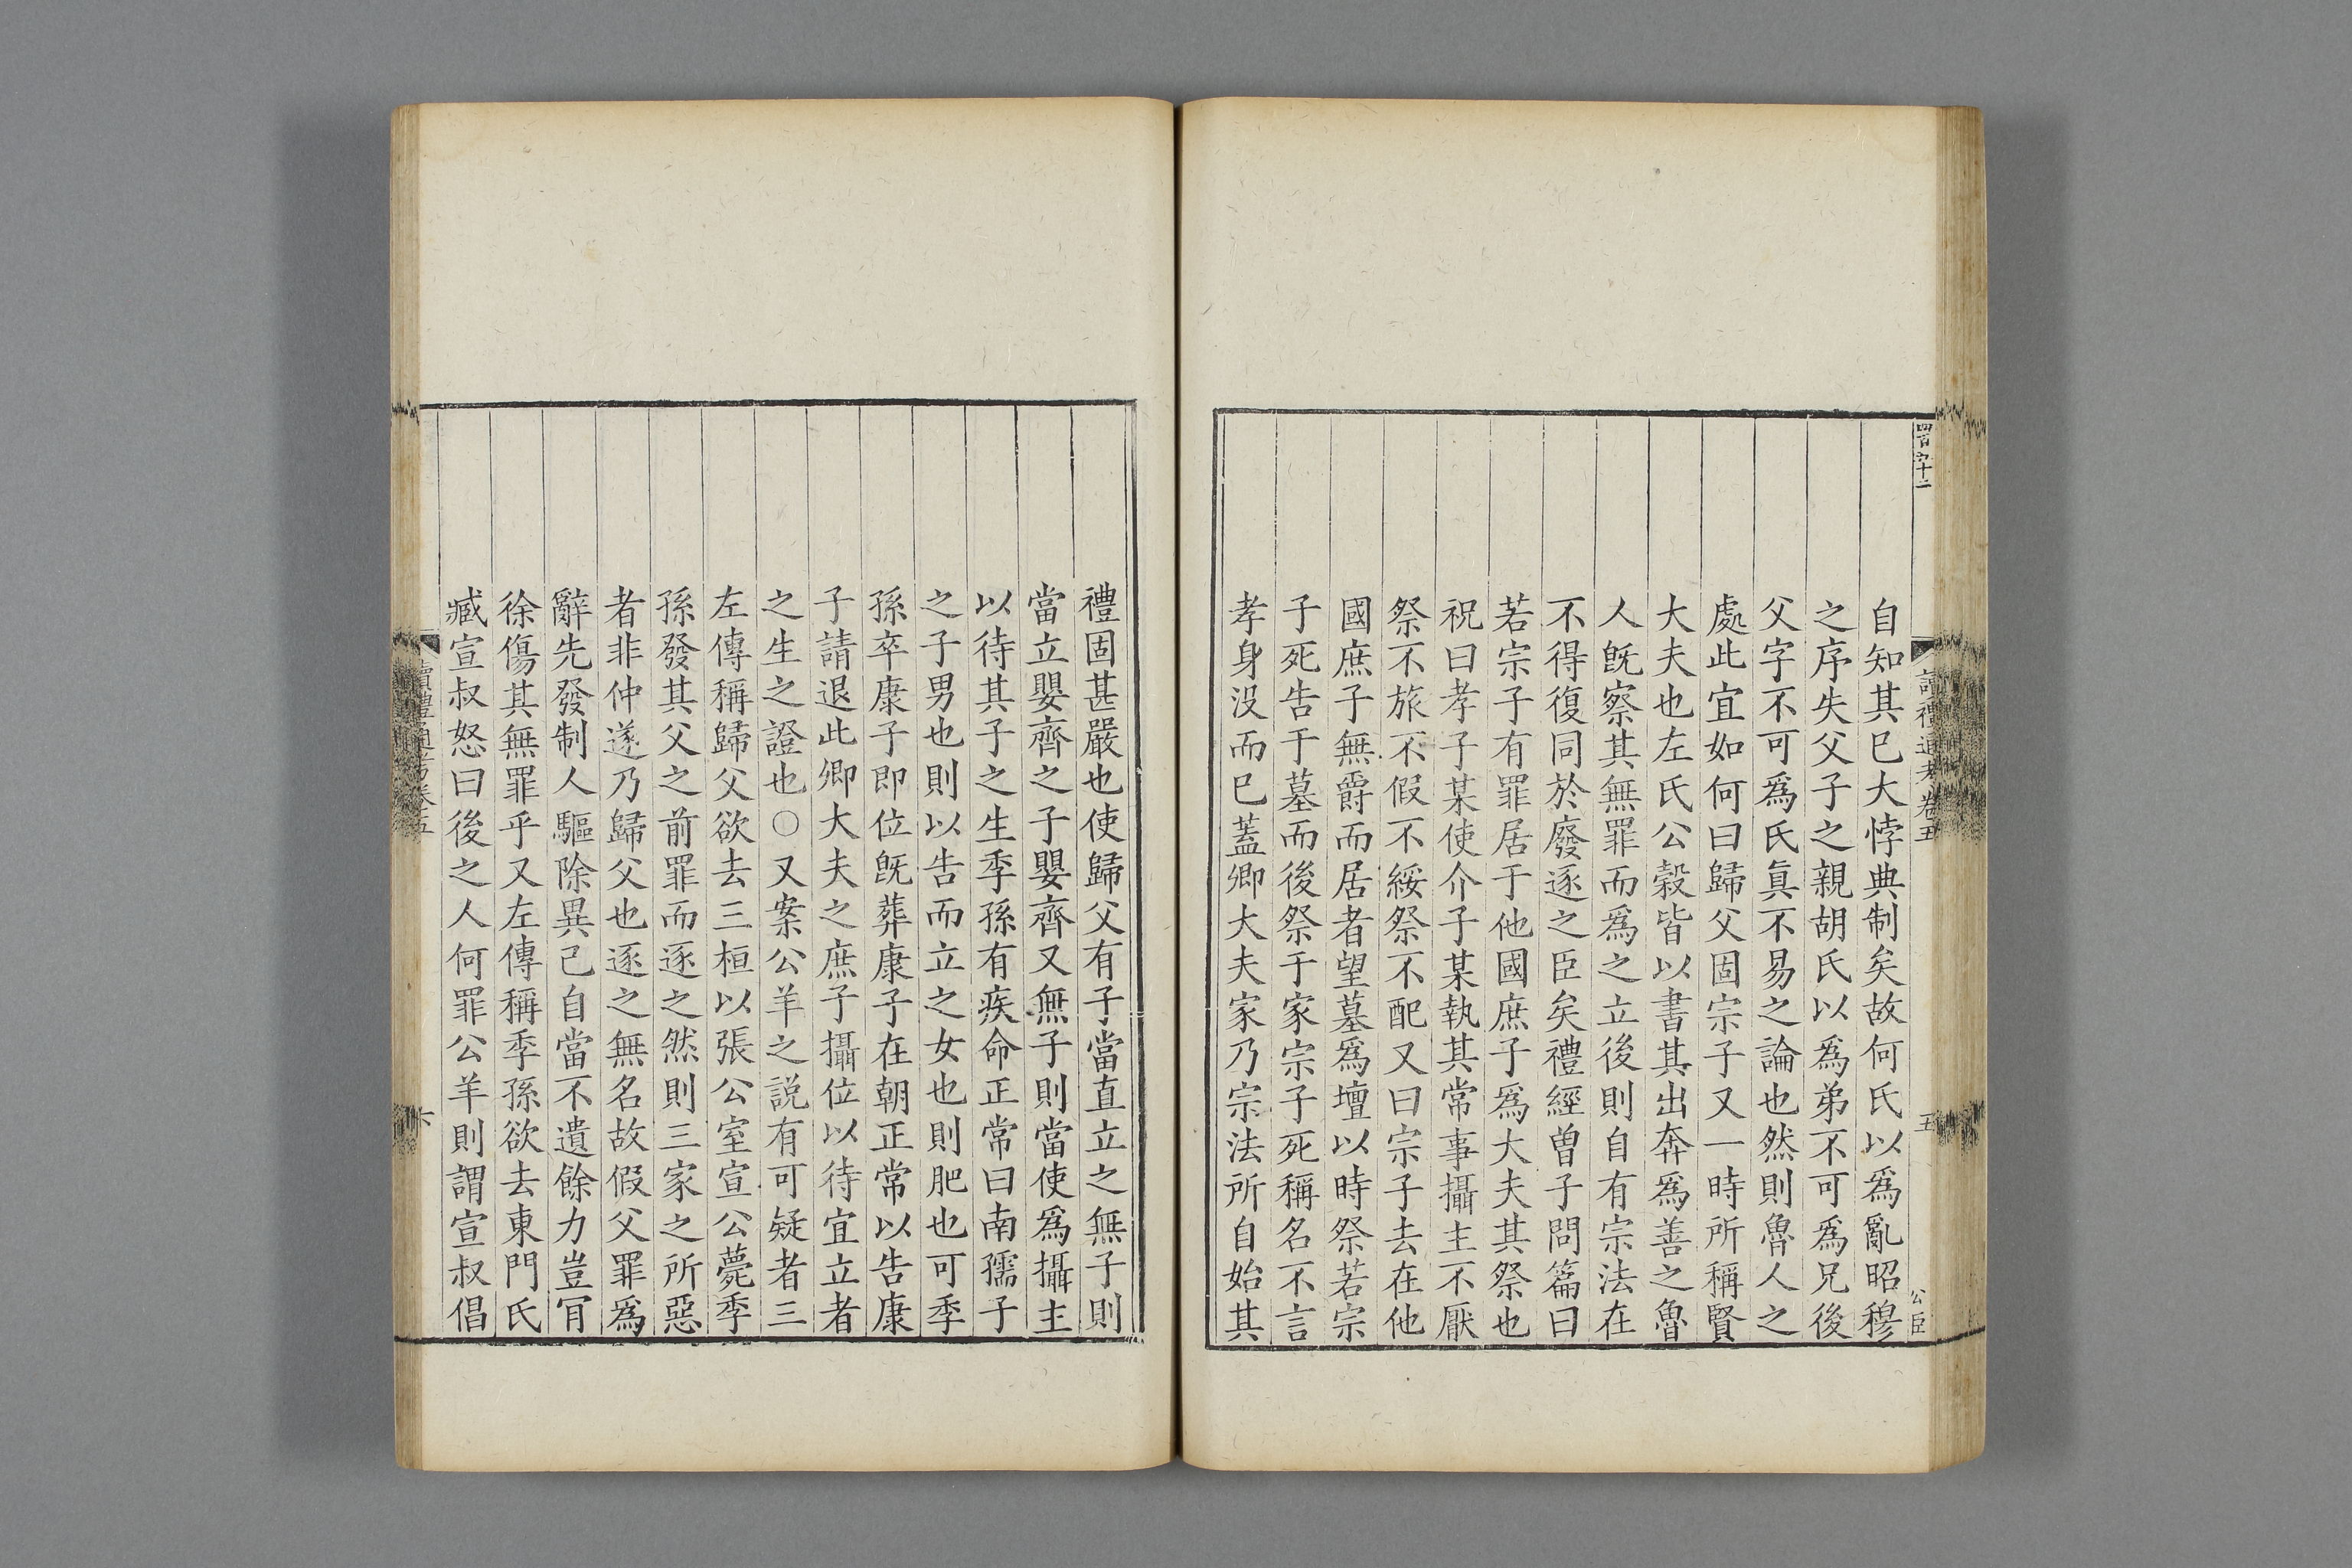 四百六十二
讀禮通考卷五
五
公臣
自知其已大悖典制矣故何氏以爲亂昭穆
之序失父子之親胡氏以爲弟不可爲兄後
父字不可爲氏眞不易之論也然則魯人之
處此宜如何曰歸父固宗子又一時所稱賢
大夫也左氏公穀皆以書其出奔爲善之魯
人旣察其無罪而爲之立後則自有宗法在
不得復同於廢逐之臣矣禮經曾子問篇曰
若宗子有罪居于他國庶子爲大夫其祭也
祝曰孝子某使介子某執其常事攝主不厭
祭不旅不假不綏祭不配又曰宗子去在他
國庶子無爵而居者望墓爲壇以時祭若宗
子死告于墓而後祭于家宗子死稱名不言
孝身沒而已蓋卿大夫家乃宗法所自始其
禮固甚嚴也使歸父有子當直立之無子則
當立嬰齊之子嬰齊又無子則當使爲攝主
以待其子之生季孫有疾命正常曰南孺子
之子男也則以告而立之女也則肥也可季
孫卒康子即位旣葬康子在朝正常以告康
子請退此卿大夫之庶子攝位以待宜立者
之生之證也○又案公羊之說有可疑者三
左傳稱歸父欲去三桓以張公室宣公薨季
孫發其父之前罪而逐之然則三家之所惡
者非仲遂乃歸父也逐之無名故假父罪爲
辭先發制人驅除異己自當不遺餘力豈肎
徐傷其無罪乎又左傳稱季孫欲去東門氏
臧宣叔怒曰後之人何罪公羊則謂宣叔倡
讀禮通考卷五
六